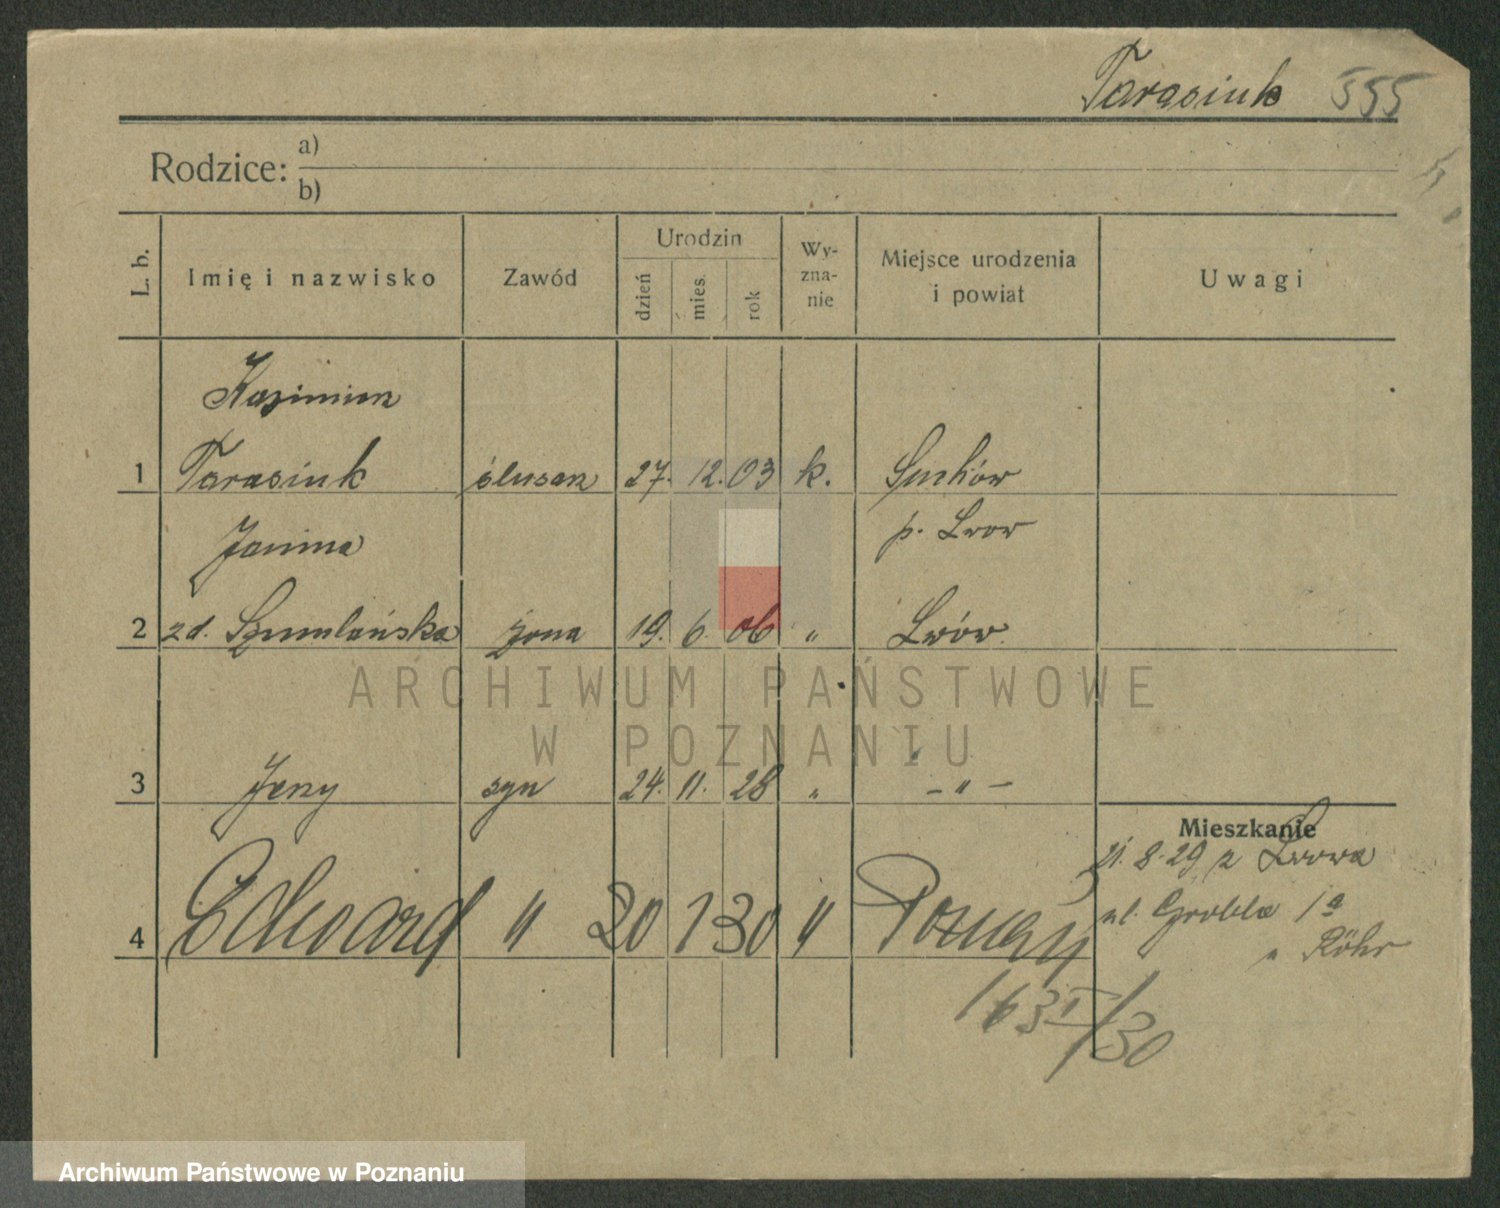 Tarasiuk 555
Rodzice: a)
b)
L. b. Imię i nazwisko Zawód Urodzin dzień mies. rok Wy-zna-nie Miejsce urodzenia i powiat Uwagi
Kazimierz
1 Tarasiuk ślusarz 27. 12. 03 k. Suchów
Janina p. Lwow
2 zd. Szmulańska żona 19. 6. 06 " Lwów
3 Jerzy syn 24. 11. 28 " - " -
Mieszkanie
21. 8. 29 z Lwowa
4 Edward " 20 1 30 " Poznań ul. Grobla 1a
" Röhr
163 I/30
ARCHIWUM PAŃSTWOWE
W POZNANIU
Archiwum Państwowe w Poznaniu